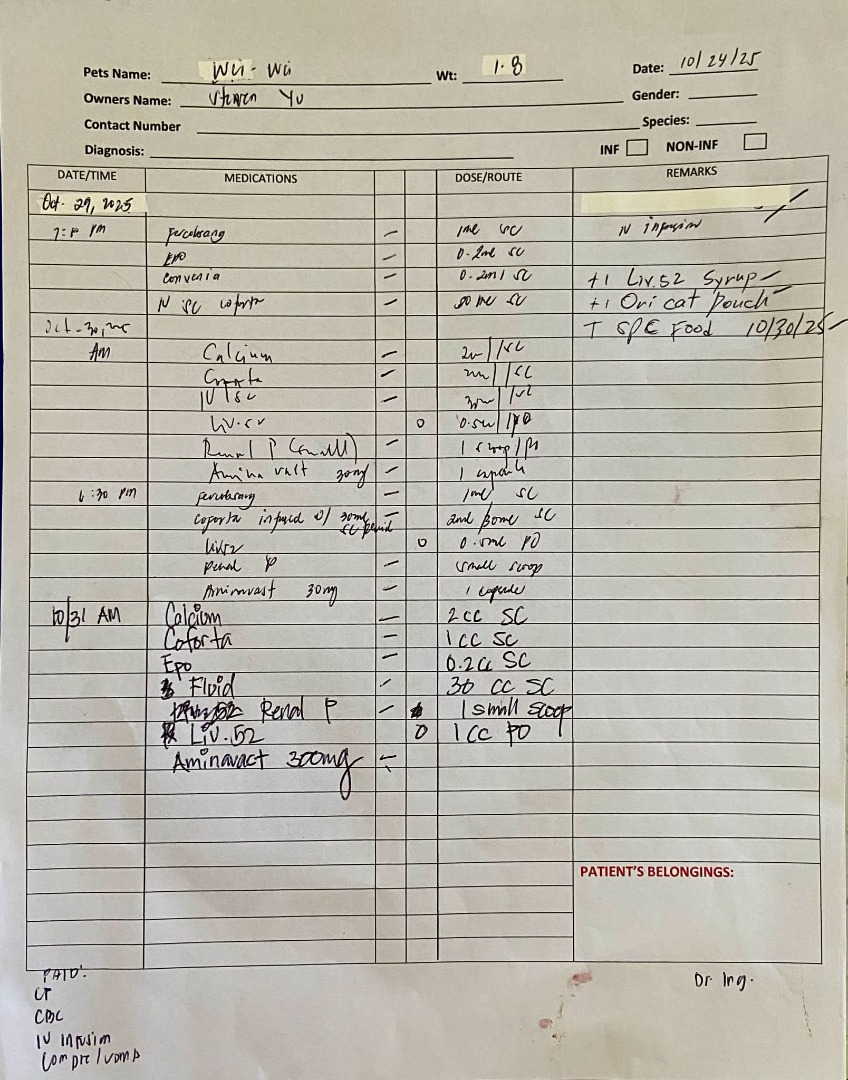 Pets Name: Wii - Wii Wt: 1.8 Date: 10/24/25
Owners Name: Yu Gender:
Contact Number Species:
Diagnosis: INF NON-INF
DATE/TIME MEDICATIONS DOSE/ROUTE REMARKS
Oct. 29, 2025
PM — 1ml SC IV infusion
EPO 0.2ml SC
Convenia — 0.2ml SC +1 Liv.52 Syrup
IV SC coforta — 30 ml SC +1 Ori cat pouch
Oct. 30, T SPE Food 10/30/25
AM Calcium — /SC
IV /SC —
o 0.5ml /PO
Renal P (small) — 1 scoop/
30mg — 1 capsule
6:30 PM — 1ml SC
Coforta infused w/ 30ml SC fluid — 2ml/30ml SC
Liv52 o 0.5ml PO
Renal P — small scoop
Aminavast 30mg — 1 capsule
10/31 AM Calcium — 2 cc SC
Coforta — 1 cc SC
Epo — 0.2cc SC
Fluid — 30 cc SC
Renal P — 1 small scoop
Liv.52 o 1 cc PO
Aminavact 300mg —
PATIENT'S BELONGINGS:
PAID: Dr. Ing.
CT
CBC
IV Infusion